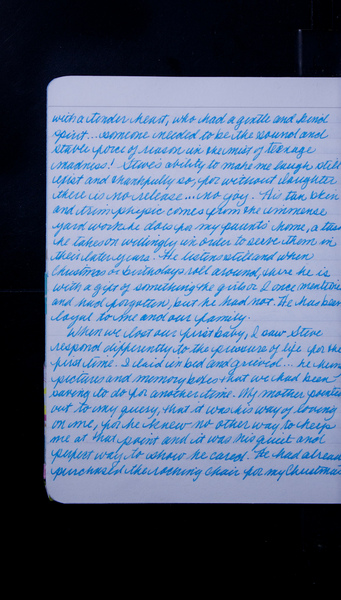 with a tender heart, who had a gentle and kind
spirit... someone needed to be the sound and
stable force of reason in the midst of teenage
madness! Steve's ability to make me laugh still
exist and thankfully so, for without laughter
there is no release... no joy. His tan skin
and trim physic comes from the immense
yard work he does for my parents home, a
he takes on willingly in order to serve them in
their later years. He listens still and when
Christmas or birthdays roll around, sure he is
with a gift of something the girls or I once
and had forgotten, but he had not. He has been
loyal to me and our family.
When we lost our first baby, I saw Steve
respond differently to the pressure of life for the
first time. I laid in bed and grieved... he
pictures and memory boxes that we had been
saving to do for another time. My mother
out to my query, that it was his way of loving
on me, for he knew no other way to help
me at that point and it was his quiet and
perfect way to show he cared. He had
purchased the rocking chair for my Christmas